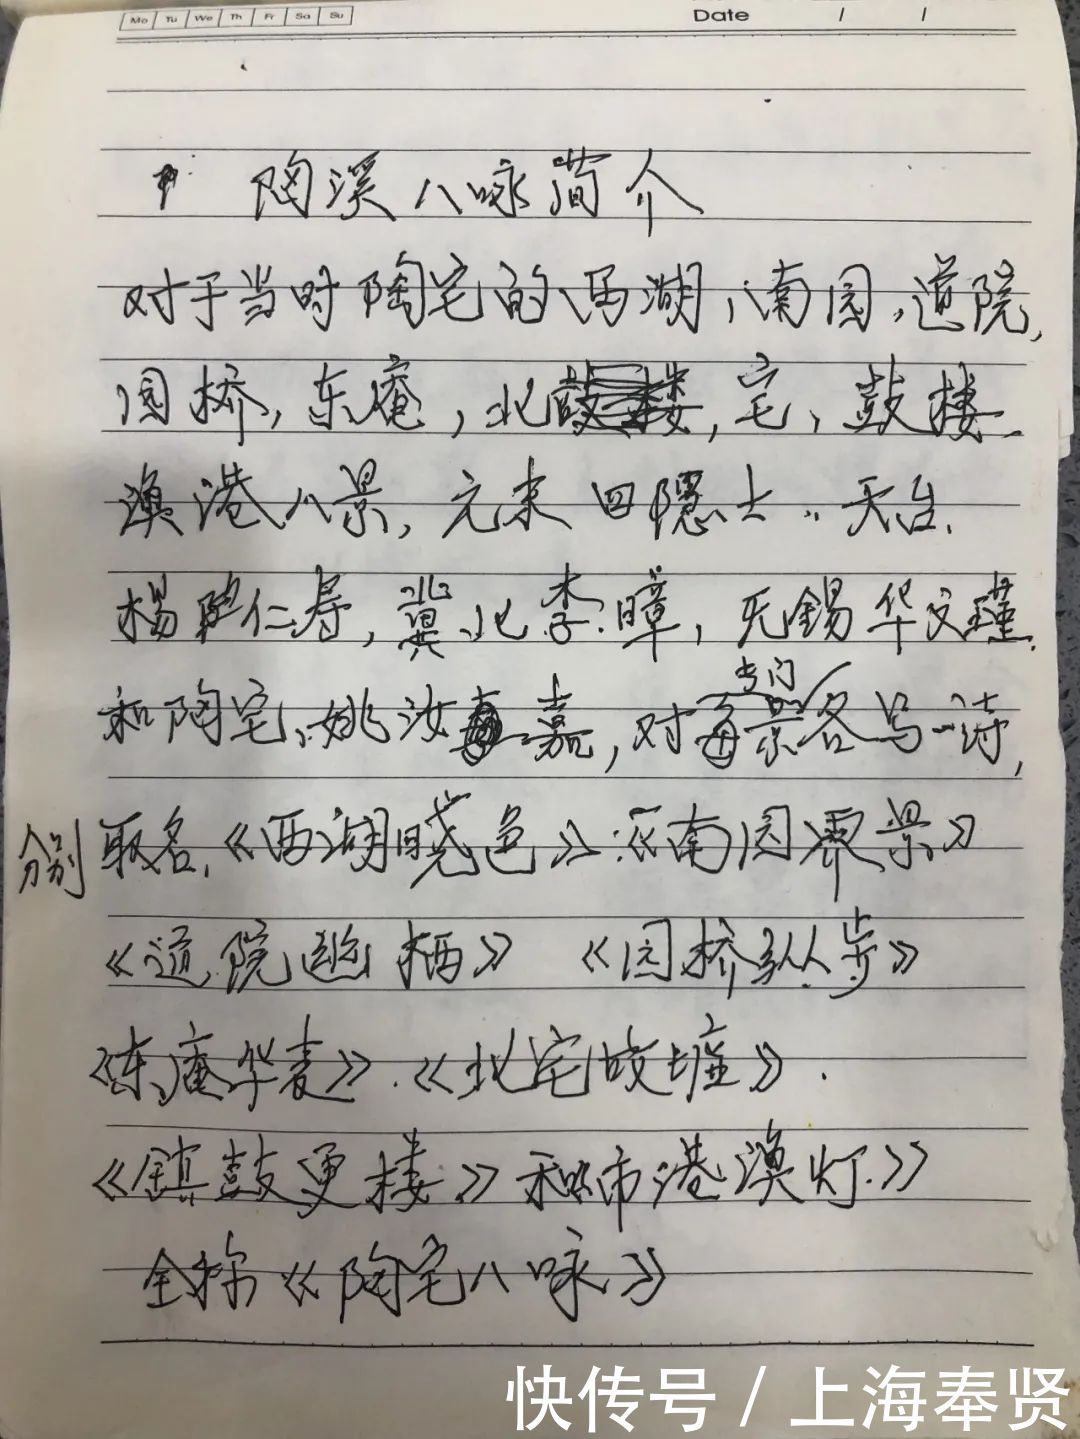 Mo Tu We Th Fr Sa Su
Date / /
陶溪八咏简介
对于当时陶宅的西湖、南园,道院,
园桥,东庵,北宅,鼓楼
渔港八景,元末四隐士:天台
杨仁寿,冀北李暲,无锡华文瑾
和陶宅姚汝嘉,对每景专门各写一诗,
分别取名《西湖晓色》《南园霁景》
《道院幽栖》《园桥纵步》
《东庵华表》《北宅
《镇鼓更楼》和市港渔灯》
全称《陶宅八咏》
快传号 / 上海奉贤